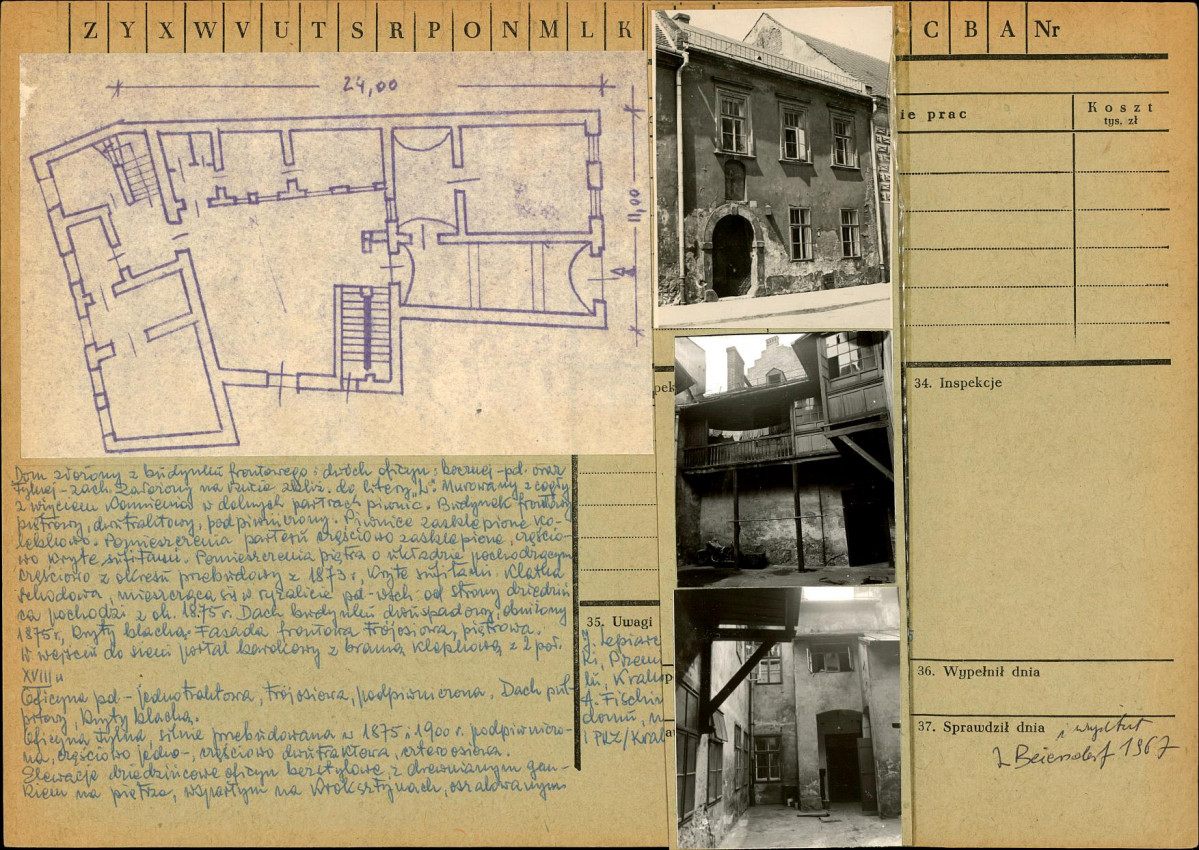 Z Y X W V U T S R P O N M L K
C B A Nr
24,00
11,00
ie prac
Koszt
tys. zł
34. Inspekcje
Dom złożony z budynku frontowego i dwóch oficyn: bocznej - pd. oraz
tylnej - zach. założony na rzucie zbliż. do litery „L". Murowany z cegły
z użyciem kamienia w dolnych partiach piwnic. Budynek frontowy
piętrowy, dwutraktowy, podpiwniczony. Piwnice zasklepione ko-
lebkowo. Pomieszczenia parteru częściowo zasklepione, częścio-
wo kryte sufitami. Pomieszczenia piętra o układzie pochodzącym
częściowo z okresu przebudowy z 1873 r, kryte sufitami. Klatka
schodowa, mieszcząca się w ryzalicie pd-wsch. od strony dziedziń
ca pochodzi z ok. 1875 r. Dach budynku dwuspadowy, obniżony
1875 r, kryty blachą. Fasada frontowa trójosiowa, piętrowa.
W wejściu do sieni portal barokowy z bramą klepkową z 2 poł.
XVIII w
Oficyna pd - jednotraktowa, trójosiowa, podpiwniczona. Dach pul-
pitowy, kryty blachą.
Oficyna tylna, silnie przebudowana w 1875 i 1900 r. podpiwniczo-
na, częściowo jedno-, częściowo dwutraktowa, czteroosiowa.
Elewacje dziedzińcowe oficyn bezstylowe, z drewnianym gan-
kiem na piętrze, wspartym na kroksztynach, oszalowanym
35. Uwagi
J. Lepiarc
ki, Przem
łu, Krako
A. Fischin
domu, m
i PUZ/Krak
36. Wypełnił dnia
37. Sprawdził dnia
J Beiersdorf 1967